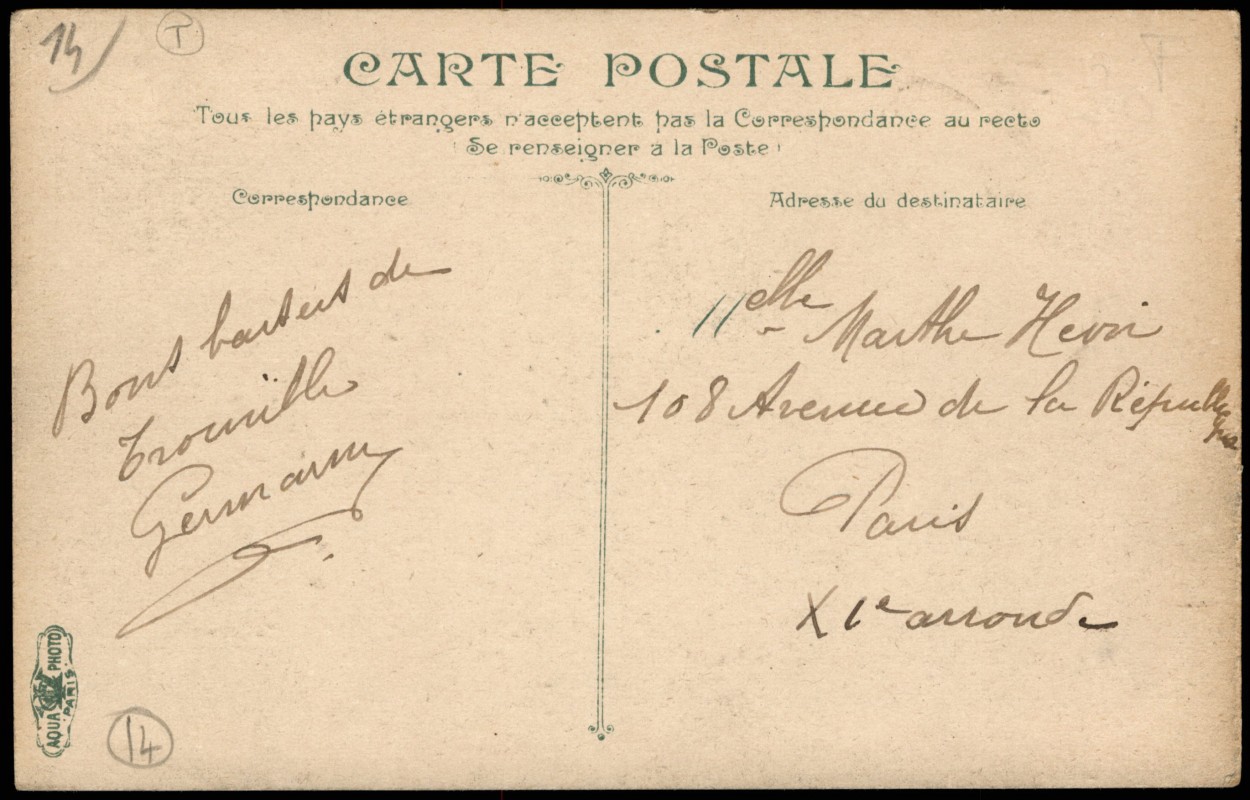 14
T
CARTE POSTALE
Tous les pays étrangers n'acceptent pas la Correspondance au recto
Se renseigner a la Poste
Correspondance
Bons baisers de
Trouville
Germaine
AQUA PHOTO
PARIS
14
Adresse du destinataire
Melle Marthe
108 Avenue de la République
Paris
XIe arrond